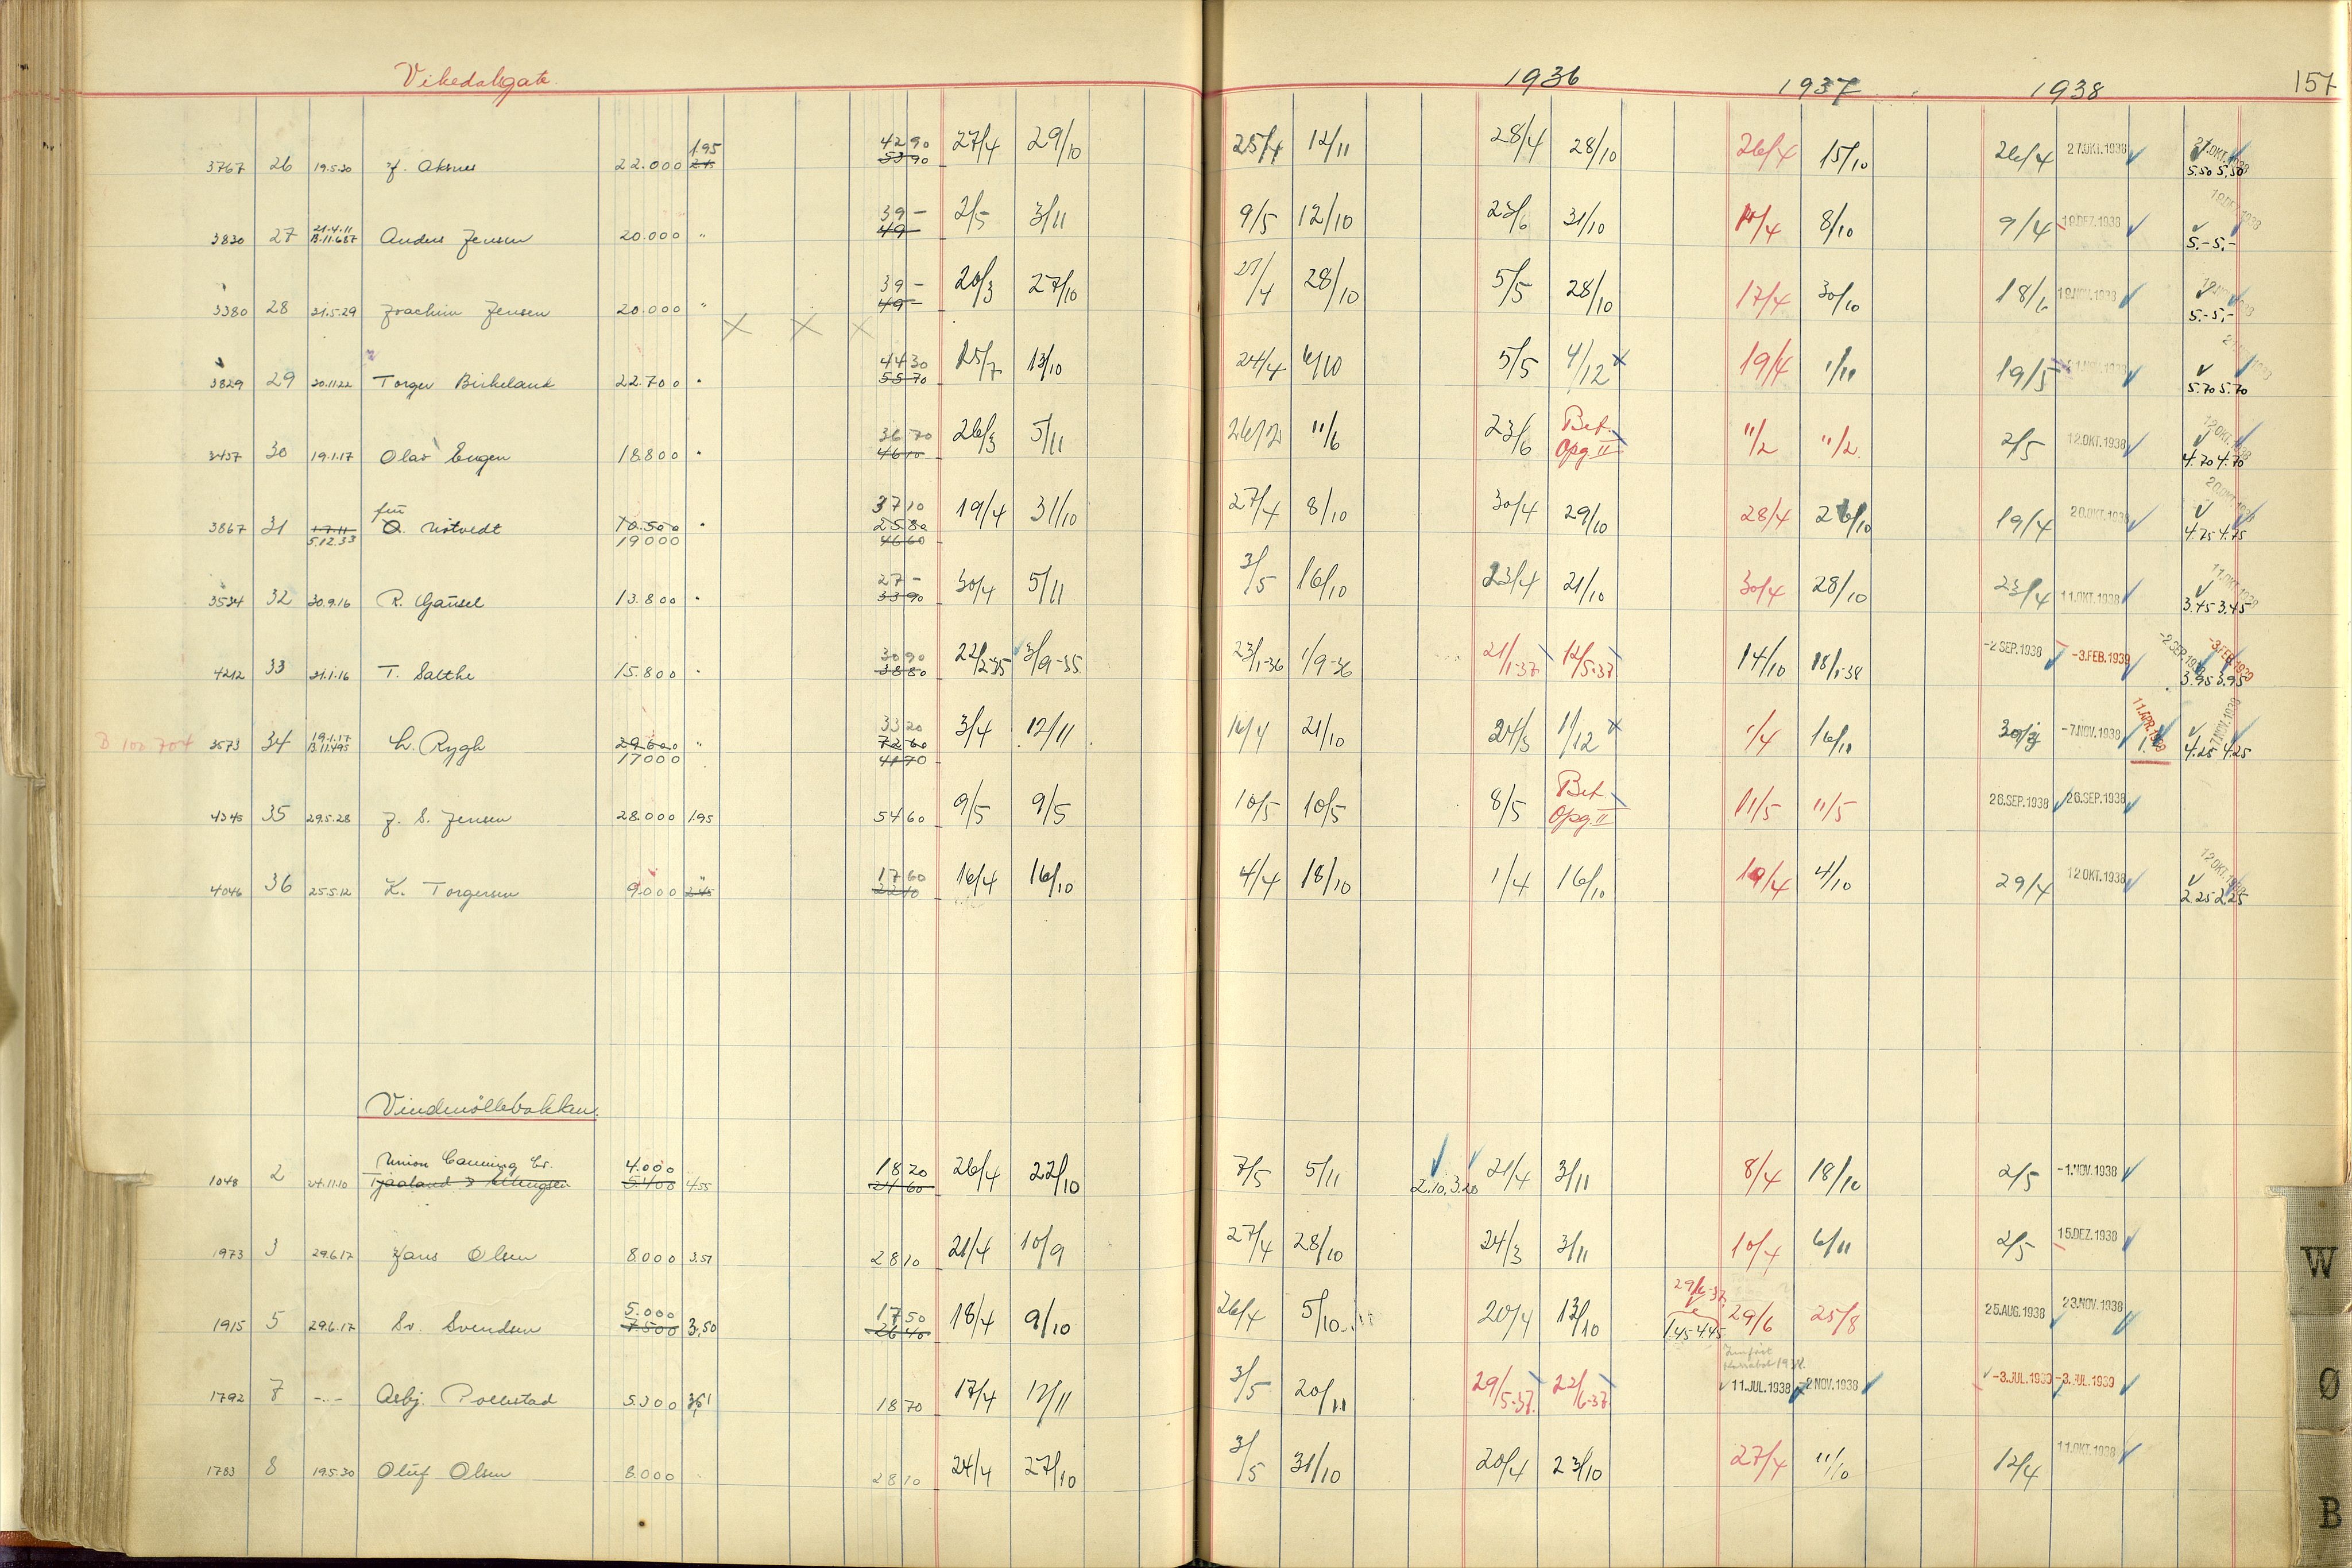 Vikedalsgate. 1936 1937 1938 157
1.95 42 90
3767 26 19.5.30 J. Aksnes 22.000 53 90 27/4 29/10 25/4 12/11 28/4 28/10 26/4 15/10 26/4 27.OKT.1938 27.OKT.1938
5.50 5.50
21.4.11 39 –
3830 27 B.11.687 Anders Jensen 20.000 " 49 – 2/5 3/11 9/5 12/10 23/6 31/10 10/4 8/10 9/4 19.DEZ.1938 19.DEZ.1938
5.– 5.–
39 –
3380 28 31.5.29 Joachim Jensen 20.000 " 49 – 20/3 27/10 27/4 28/10 5/5 28/10 17/4 30/10 18/6 19.NOV.1938
5.– 5.–
44 30
3829 29 30.11.22 Torger Birkeland 22.700 " 55 70 25/7 13/10 24/4 6/10 5/5 4/12 x 19/4 1/11 19/5
5.70 5.70
36 70 Bet.
3457 30 19.1.17 Olav Eugen 18.800 " 46 10 26/3 5/11 11/6 23/6 Opg. II 11/2 11/2. 2/5 12.OKT.1938 12.OKT.1938
4.70 4.70
für 37 10
3867 31 17.11 O. Nötvedt 10.500 " 25 80 19/4 31/10 27/4 8/10 30/4 29/10 28/4 26/10 19/4 20.OKT.1938 20.OKT.1938
5.12.33 19000 46 60 4.75 4.75
27 –
3534 32 30.9.16 R. Gausel 13.800 " 33 90 30/4 5/11 3/5 16/10 23/4 21/10 30/4 28/10 23/4 11.OKT.1938 11.OKT.1938
3.45 3.45
30 90
4212 33 31.1.16 T. Salthe 15.800 " 38 80 22/2-35 3/9-35 23/1-36 1/9-36 21/1-37 12/5-37 14/10 18/1-38 -2.SEP.1938 -3.FEB.1939 -2.SEP.1938 -3.FEB.1939
3.95 3.95
19.1.17 33 20
B 102 704 3573 34 B.11.495 L. Rygh 29600 " 72 60 3/4 12/11 16/4 21/10 24/3 1/12 x 1/4 16/11 -7.NOV.1938 11.APR.1939 -7.NOV.1938
17000 41 70 4.25 4.25
Bet.
4345 35 29.5.28 J. S. Jensen 28.000 1.95 54 60 9/5 9/5 10/5 10/5 8/5 Opg. II 11/5 11/5 26.SEP.1938 26.SEP.1938
17 60
4046 36 25.5.12 K. Torgersen 9.000 2.45 22 10 16/4 16/10 4/4 18/10 1/4 16/10 19/4 4/10 29/4 12.OKT.1938 12.OKT.1938
2.25 2.25
Vindmöllebakken.
Union Canning Co. 4.000 18 20
1048 2 24.11.10 Tjaaland & 5.400 4.55 24 60 26/4 22/10 7/5 5/11 2.10, 3.20 21/4 3/11 8/4 18/10 2/5 -1.NOV.1938
1973 3 29.6.17 Hans Olsen 8.000 3.51 28 10 21/4 10/9 27/4 28/10 24/3 3/11 10/4 6/11 2/5 15.DEZ.1938
5.000 17 50 29/6-37
1915 5 29.6.17 Sv. Svendsen 7500 3.50 26 40 18/4 9/10 26/4 5/10 20/4 13/10 1.45 4.45 29/6 25/8 25.AUG.1938 23.NOV.1938
1792 7 –.– Asbj. Pollestad 5.300 3.51 18 70 17/4 12/11 3/5 20/11 29/5-37. 22/6-37. 11.JUL.1938 -2.NOV.1938 -3.JUL.1939 -3.JUL.1939
1783 8 19.5.30 Oluf Olsen 8.000 28 10 24/4 27/10 3/5 31/10 20/4 23/10 27/4 11/10 12/4 11.OKT.1938
W
Ø
B